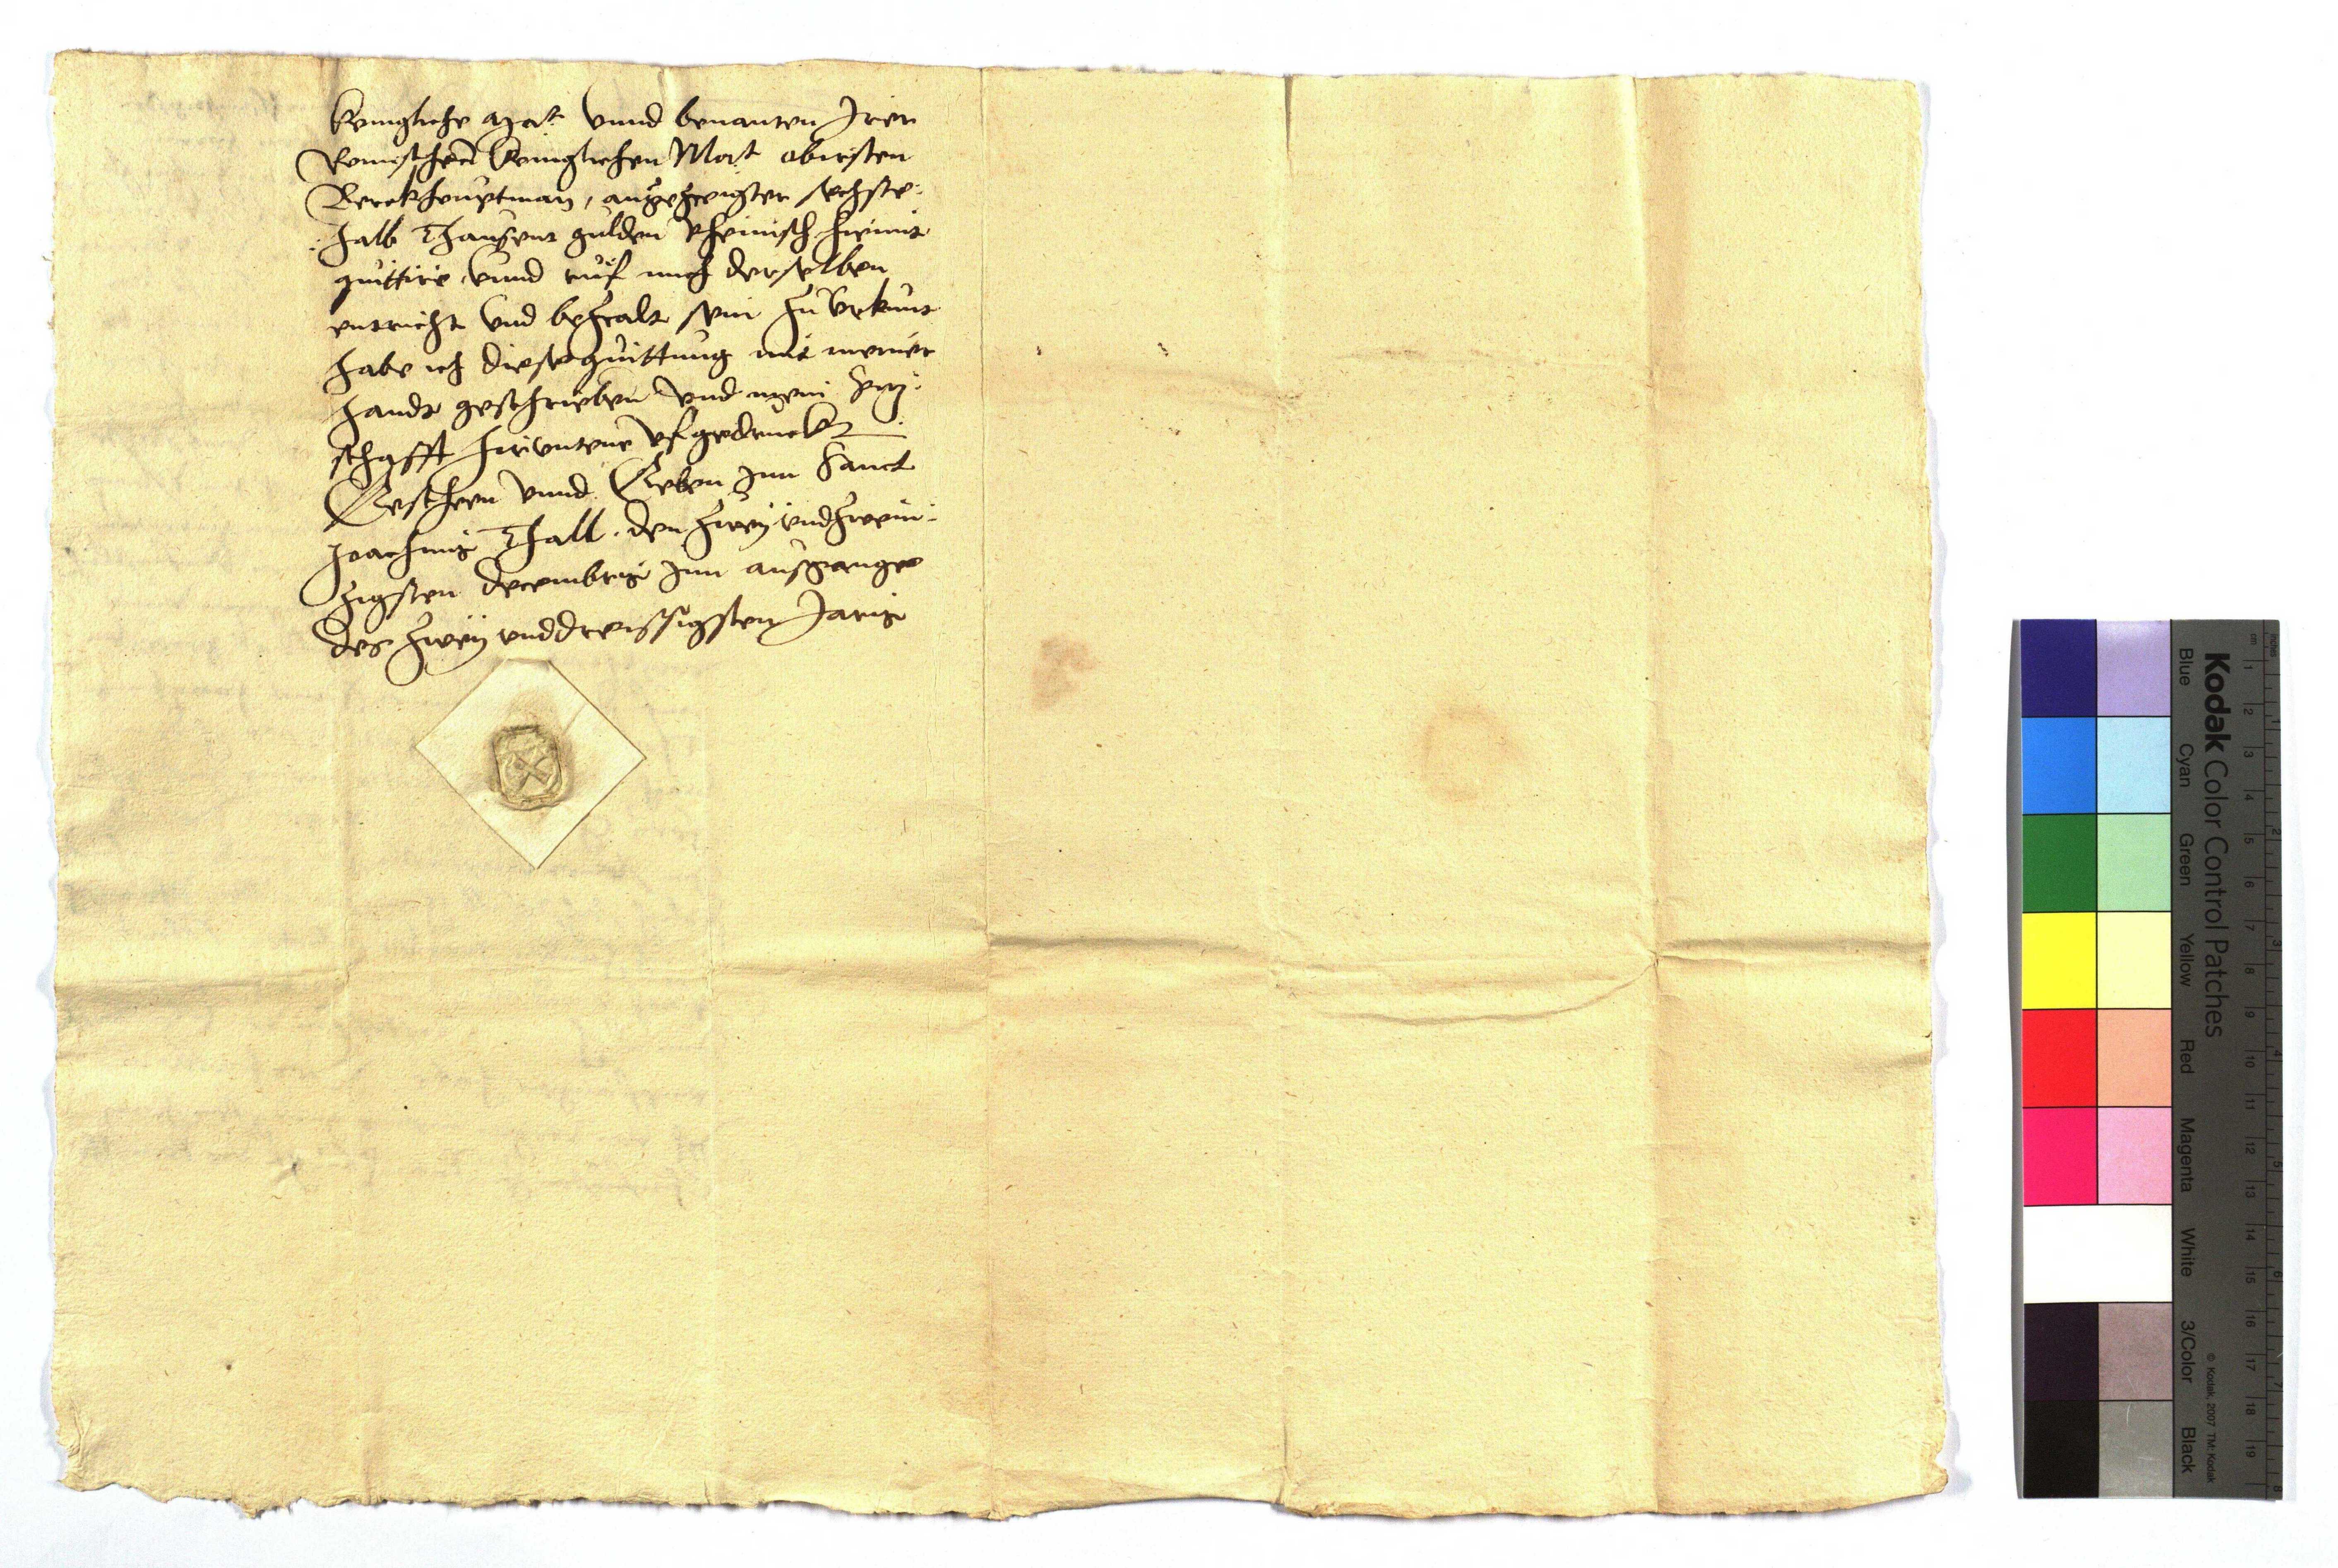 konigliche Mat vnnd benanten Irer
Romischen koniglichen Mat obirsten
Berckheuptman, angezeigter sechste-
halb Thausent gulden Rheinisch hiemit
quittire vnnd mich derselben
entricht vnd bezcalt sein zu vrkunt
habe ich diese quittung mit meiner
handt geschrieben vnd mein
schafft hirvntene vfgedruckt
Gescheen vnnd Geben Inn Sanct
Joachims Thall. den zwey vndzwein-
zigsten decembris Inn ausgange
des zwey vnddreissigsten Jaris
Kodak Color Control Patches
Blue Cyan Green Yellow Red Magenta White 3/Color Black
© Kodak, 2007 TM: Kodak
cm 1 2 3 4 5 6 7 8 9 10 11 12 13 14 15 16 17 18 19
inches 1 2 3 4 5 6 7 8